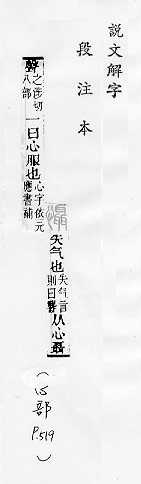 說文解字
段注本
慴
失气也失气言則曰慴从心聶
聲之涉切八部一曰心服也心字依元應書補
(心部
P.519)